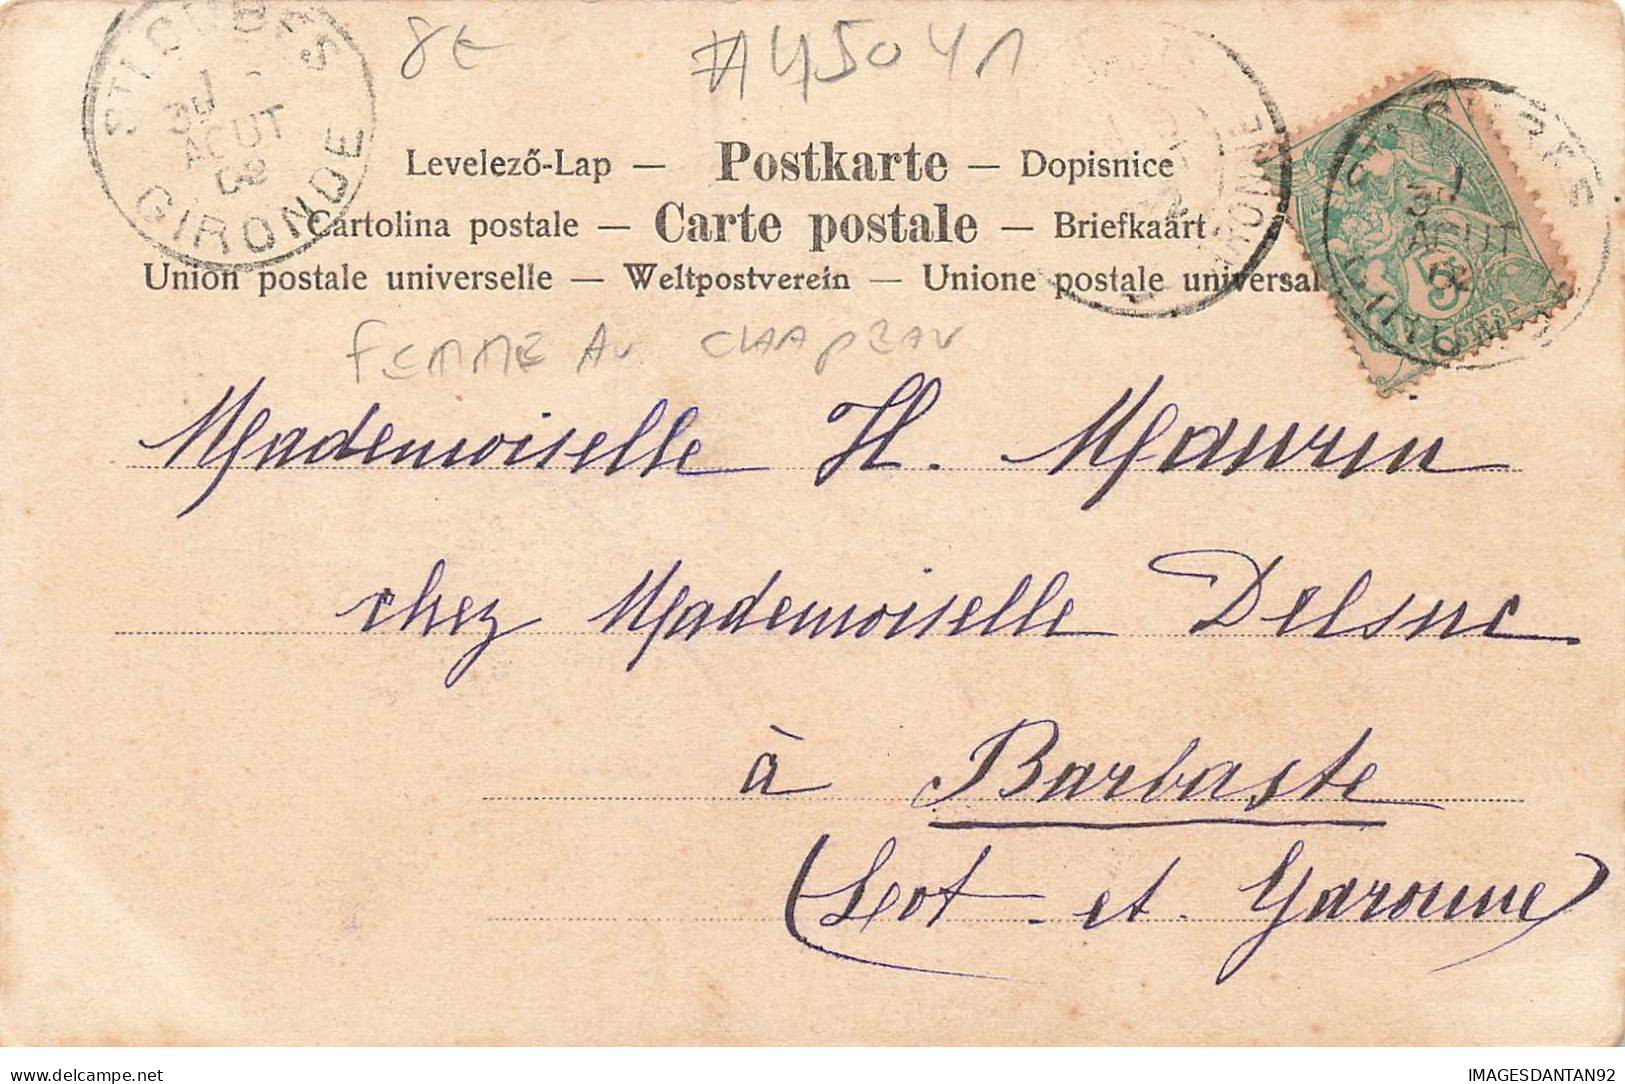 8€ #45041
ST LOUBES
30
AOUT
02
GIRONDE
Levelező-Lap — Postkarte — Dopisnice
Cartolina postale — Carte postale — Briefkaart
Union postale universelle — Weltpostverein — Unione postale universal
30
AOUT
GIRONDE
5
FEMME AU CHAPEAU
Mademoiselle H. Maurin
chez Mademoiselle Delsuc
à Barbaste
(Lot-et-Garonne)
IMAGESDANTAN92